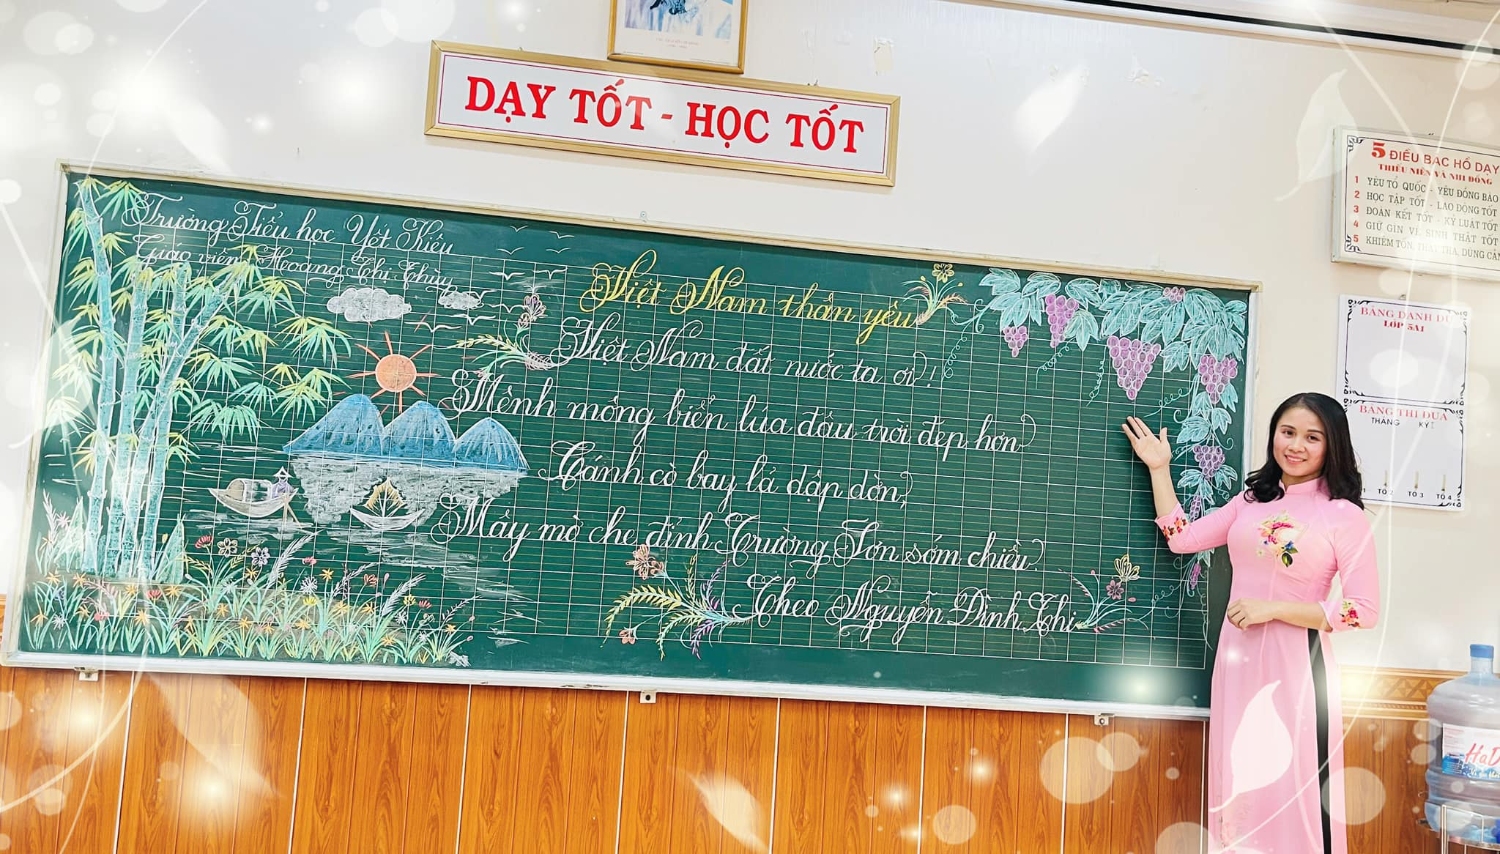 DẠY TỐT - HỌC TỐT
Trường Tiểu học Yết Kiêu
Giáo viên: Hoàng Thị Thủy
Việt Nam thân yêu
Việt Nam đất nước ta ơi!
Mênh mông biển lúa đâu trời đẹp hơn
Cánh cò bay lả dập dờn,
Mây mờ che đỉnh Trường Sơn sớm chiều.
Theo Nguyễn Đình Thi
5 ĐIỀU BÁC HỒ DẠY
THIẾU NIÊN VÀ NHI ĐỒNG
1 YÊU TỔ QUỐC - YÊU ĐỒNG BÀO
2 HỌC TẬP TỐT - LAO ĐỘNG TỐT
3 ĐOÀN KẾT TỐT - KỶ LUẬT TỐT
4 GIỮ GÌN VỆ SINH THẬT TỐT
5 KHIÊM TỐN, THẬT THÀ, DŨNG CẢM
BẢNG DANH DỰ
LỚP 5A1
BẢNG THI ĐUA
THÁNG KỲ I
TỔ 2 TỔ 3 TỔ 4